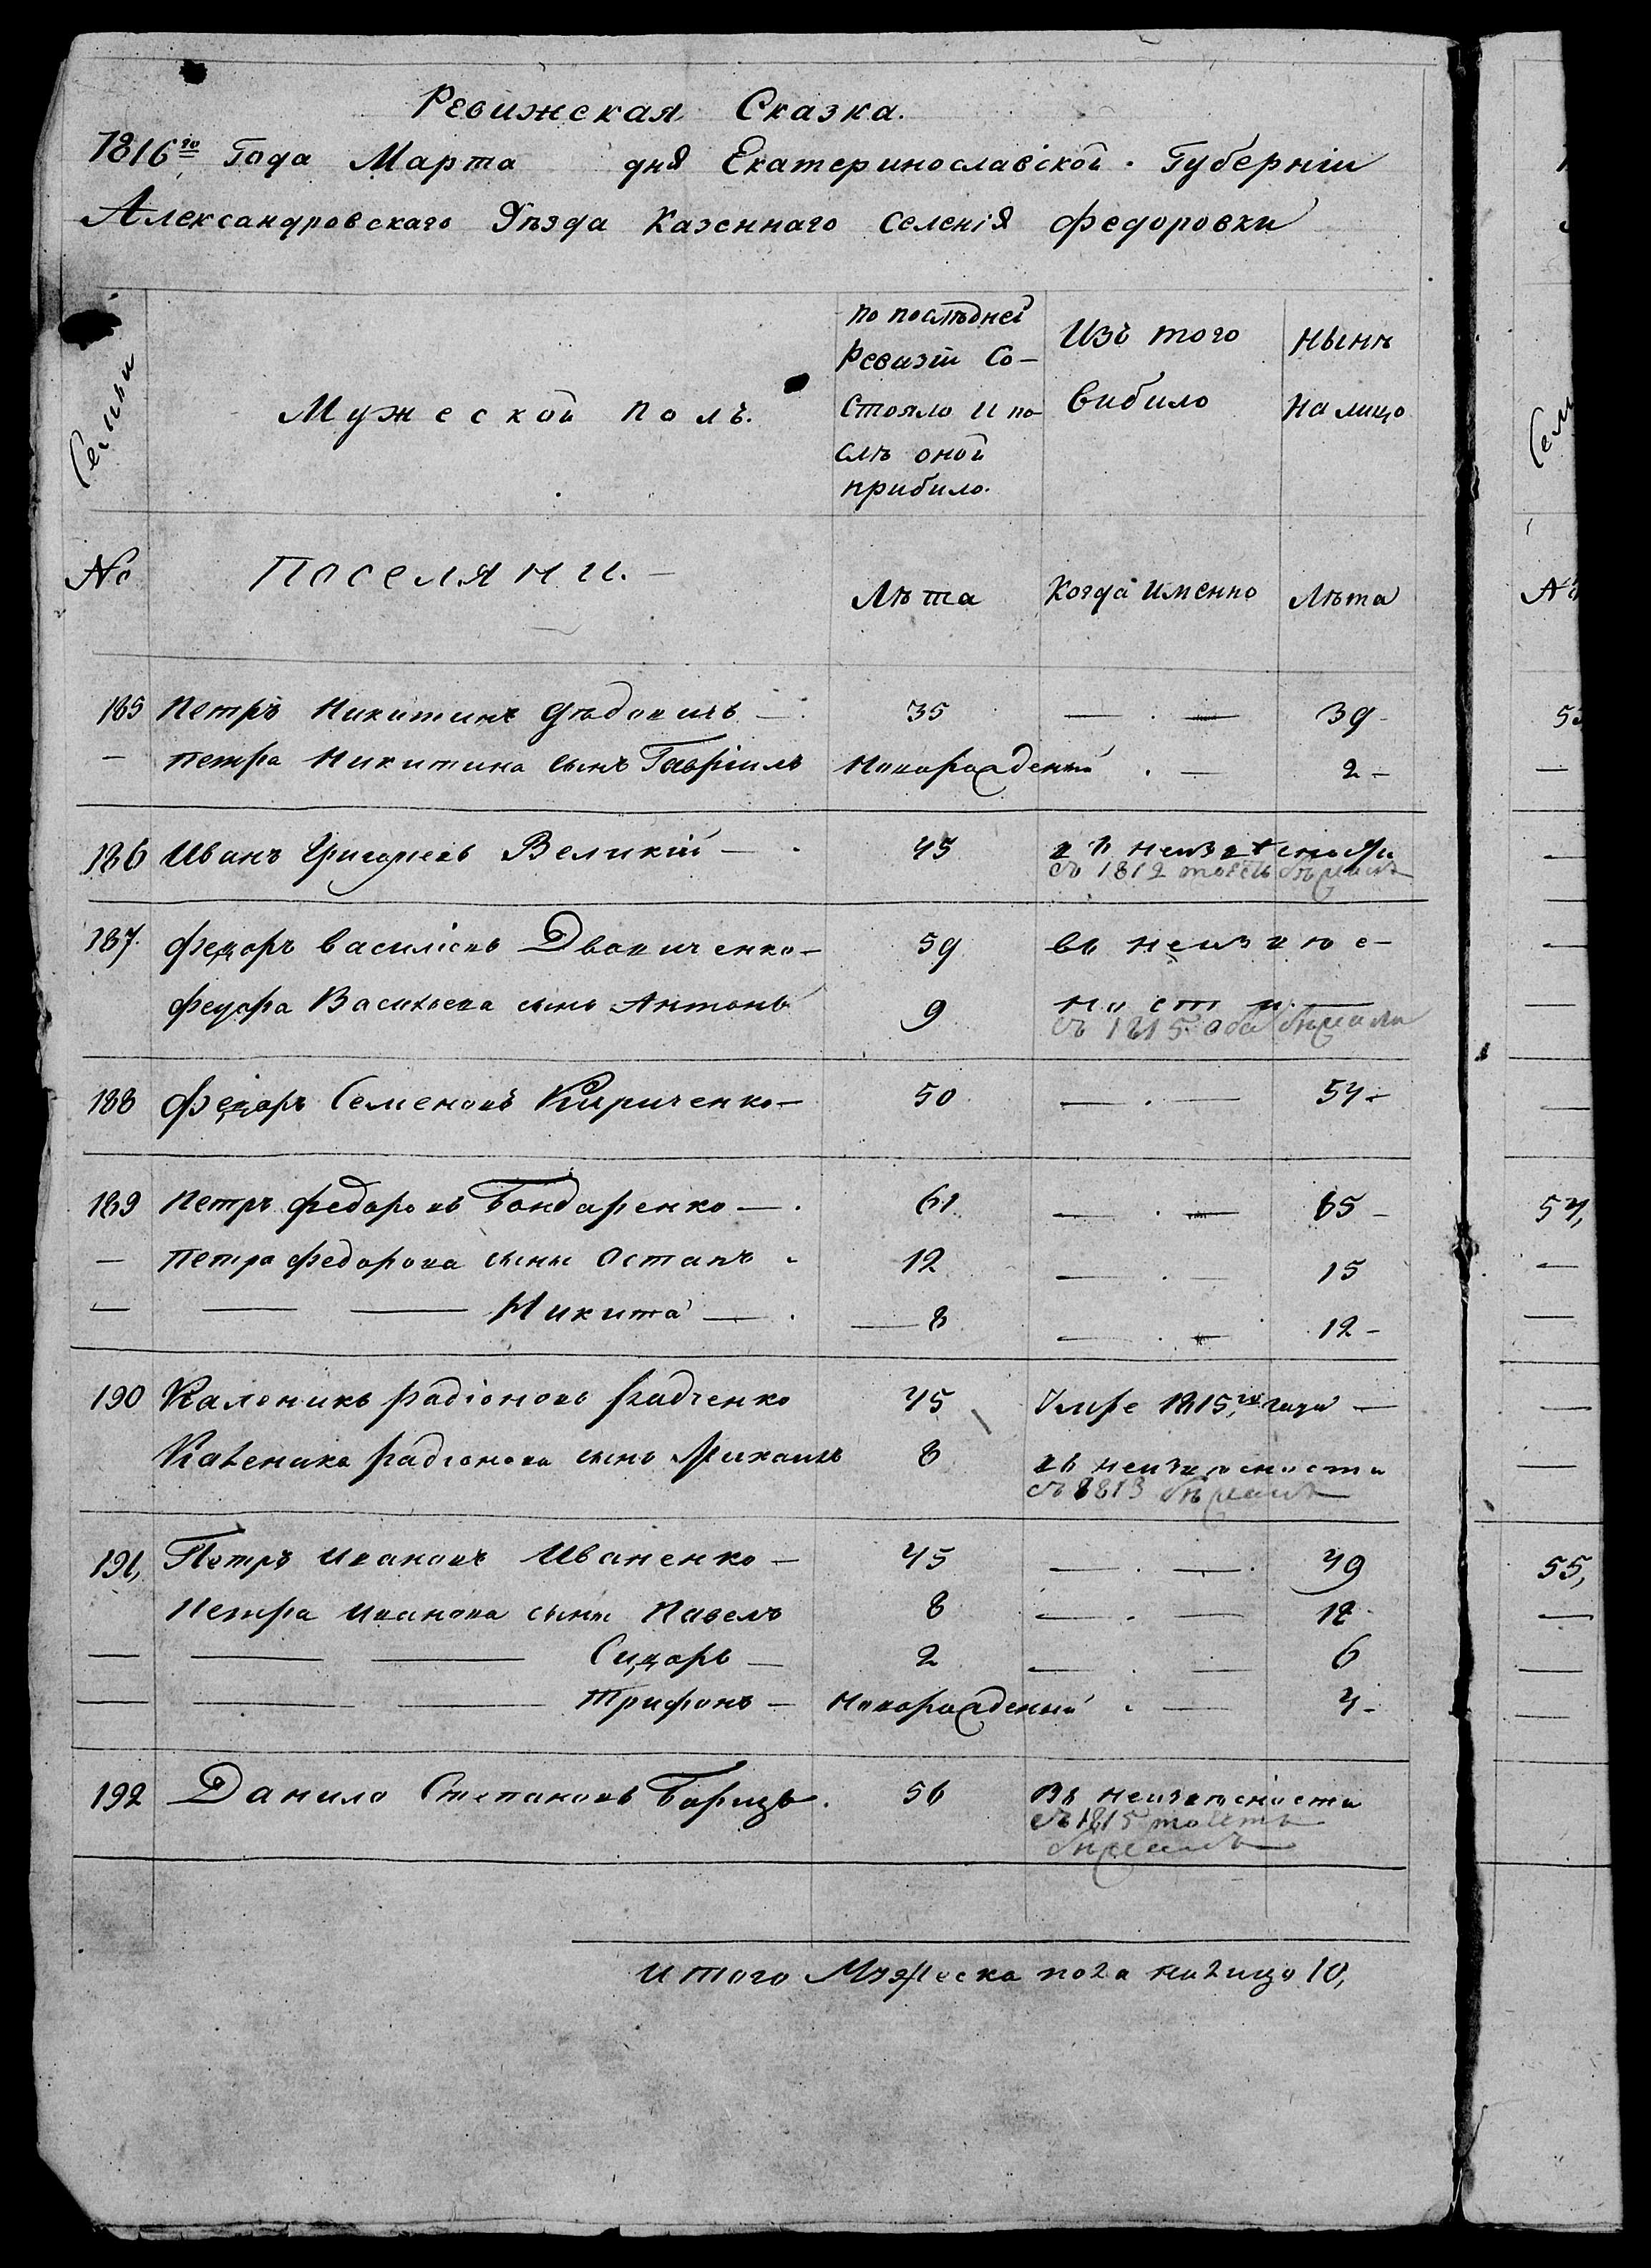 Ревижская Сказка.
1816го Года Марта дня Екатеринославской Губерніи
Александровскаго Уѣзда Казеннаго Селенія Федоровки
Семьи
Мужеской полъ.
по послѣдней Ревизіи Со-
стояло и по-
слѣ оной
прибило.
Изъ того
вибило
Нынѣ
на лицо
№
Поселяни.
Лѣта
Когда именно
Лѣта
185 Петръ Никитинъ 35 — . — 39 -
— Петра Никитина сынъ Гавріилъ Новорожденый . — 2 -
186 Иванъ Григорьевъ Великій — . 45 въ неизвѣсности
съ 1812
187. Федоръ Василіевъ Двойченко — 59 въ неизвѣс-
Федора Васильева сынъ Антонъ 9 ности
съ 1815 оба бѣжали
188 Федоръ Семеновъ Кириченко — 50 — . — 54 -
189 Петръ Федоровъ Бондаренко — . 61 — . — 65 -
— Петра Федорова сыны Остапъ 12 — . — 15
— — — Никита — . — 8 — . — 12 -
190 Каленикъ Радіоновъ Радченко 45 Умре 1815го года —
Каленика Радіонова сынъ Михаилъ 8 въ неизвѣсности
съ 1813 бѣжалъ
191, Петръ Ивановъ Иваненко — 45 — . — . 49
Петра Иванова сыны Павелъ 8 — . — 12
— — — Сидоръ — 2 — . — 6
— — — Трифонъ — Новорожденый . — 4 -
192 Данило Степановъ 56 Въ неизвѣсности
съ 1815
бѣжалъ
Итого Мужеска пола налицо 10,
54,
55,